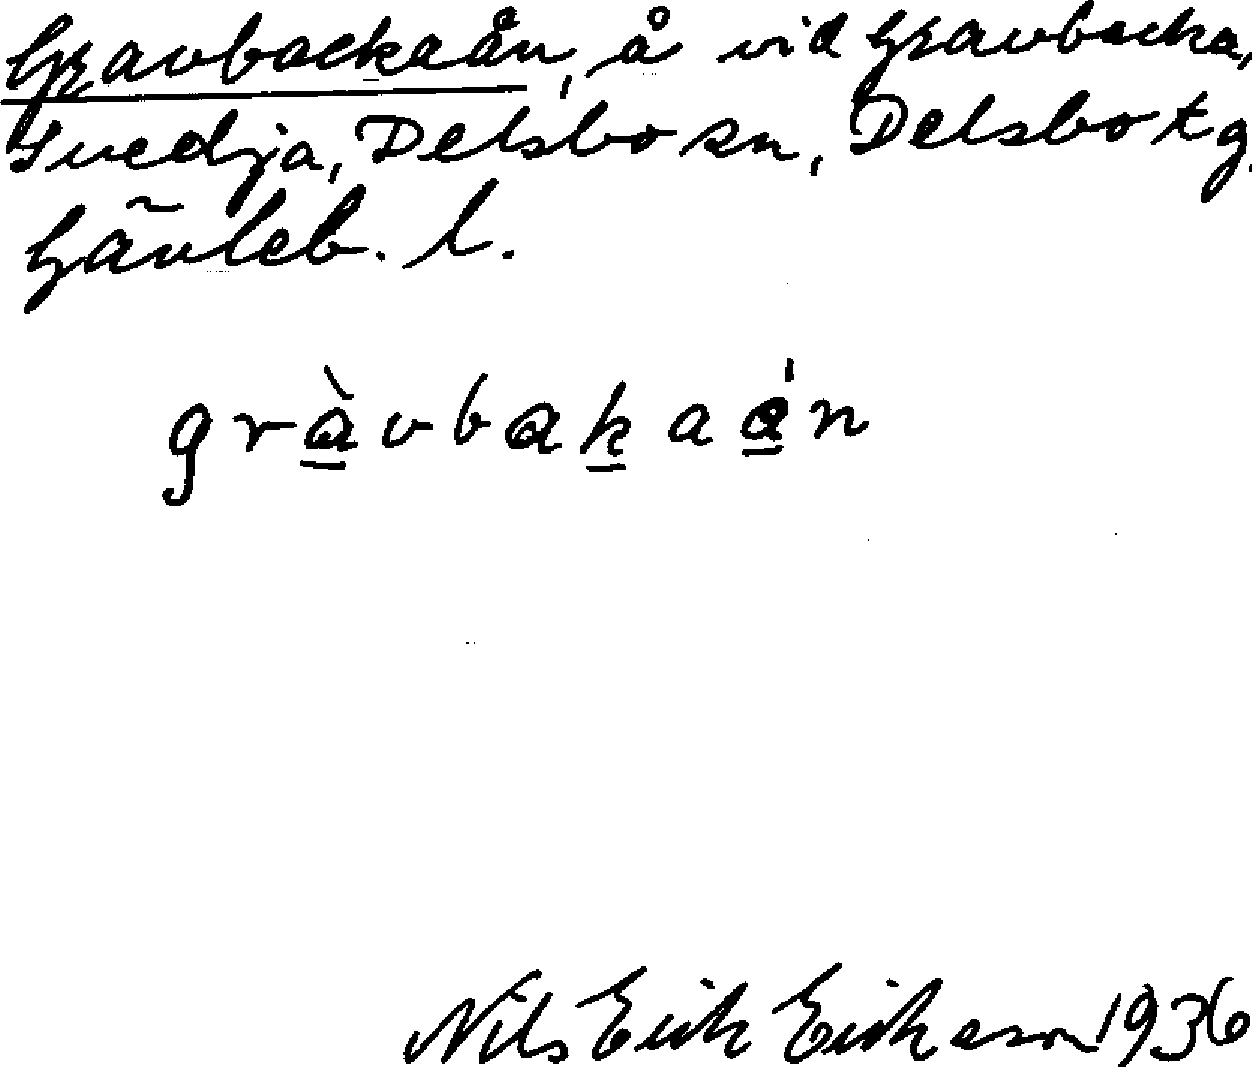 Gravbackaån, å vid Gravbacka,
Svedja, Delsbo sn, Delsbo tg
Gävleb. l.
gràvbakaán
Nils Erik Erikeson 1936